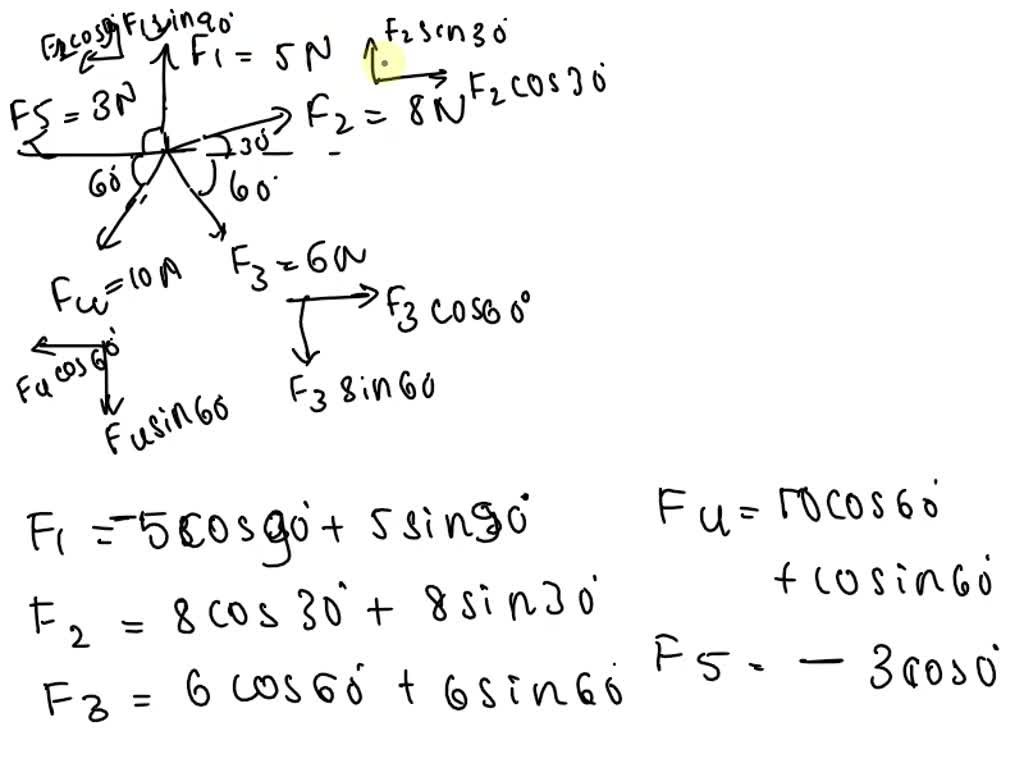 F₁sin90°
F₁ = 5N
F₂sin30°
F₂cos30°
F5 = 3N
F₂ = 8N
30°
60°
60°
F₃ = 6N
F₄ = 10N
F₃ cos60°
F₃ sin60
F₄ cos60°
F₄sin60
F₁ = -5cos90° + 5sin90°
F₂ = 8cos30° + 8sin30°
F₃ = 6cos60° + 6sin60
F₄ = 10cos60°
+ 10sin60°
F5 = - 3cos0°